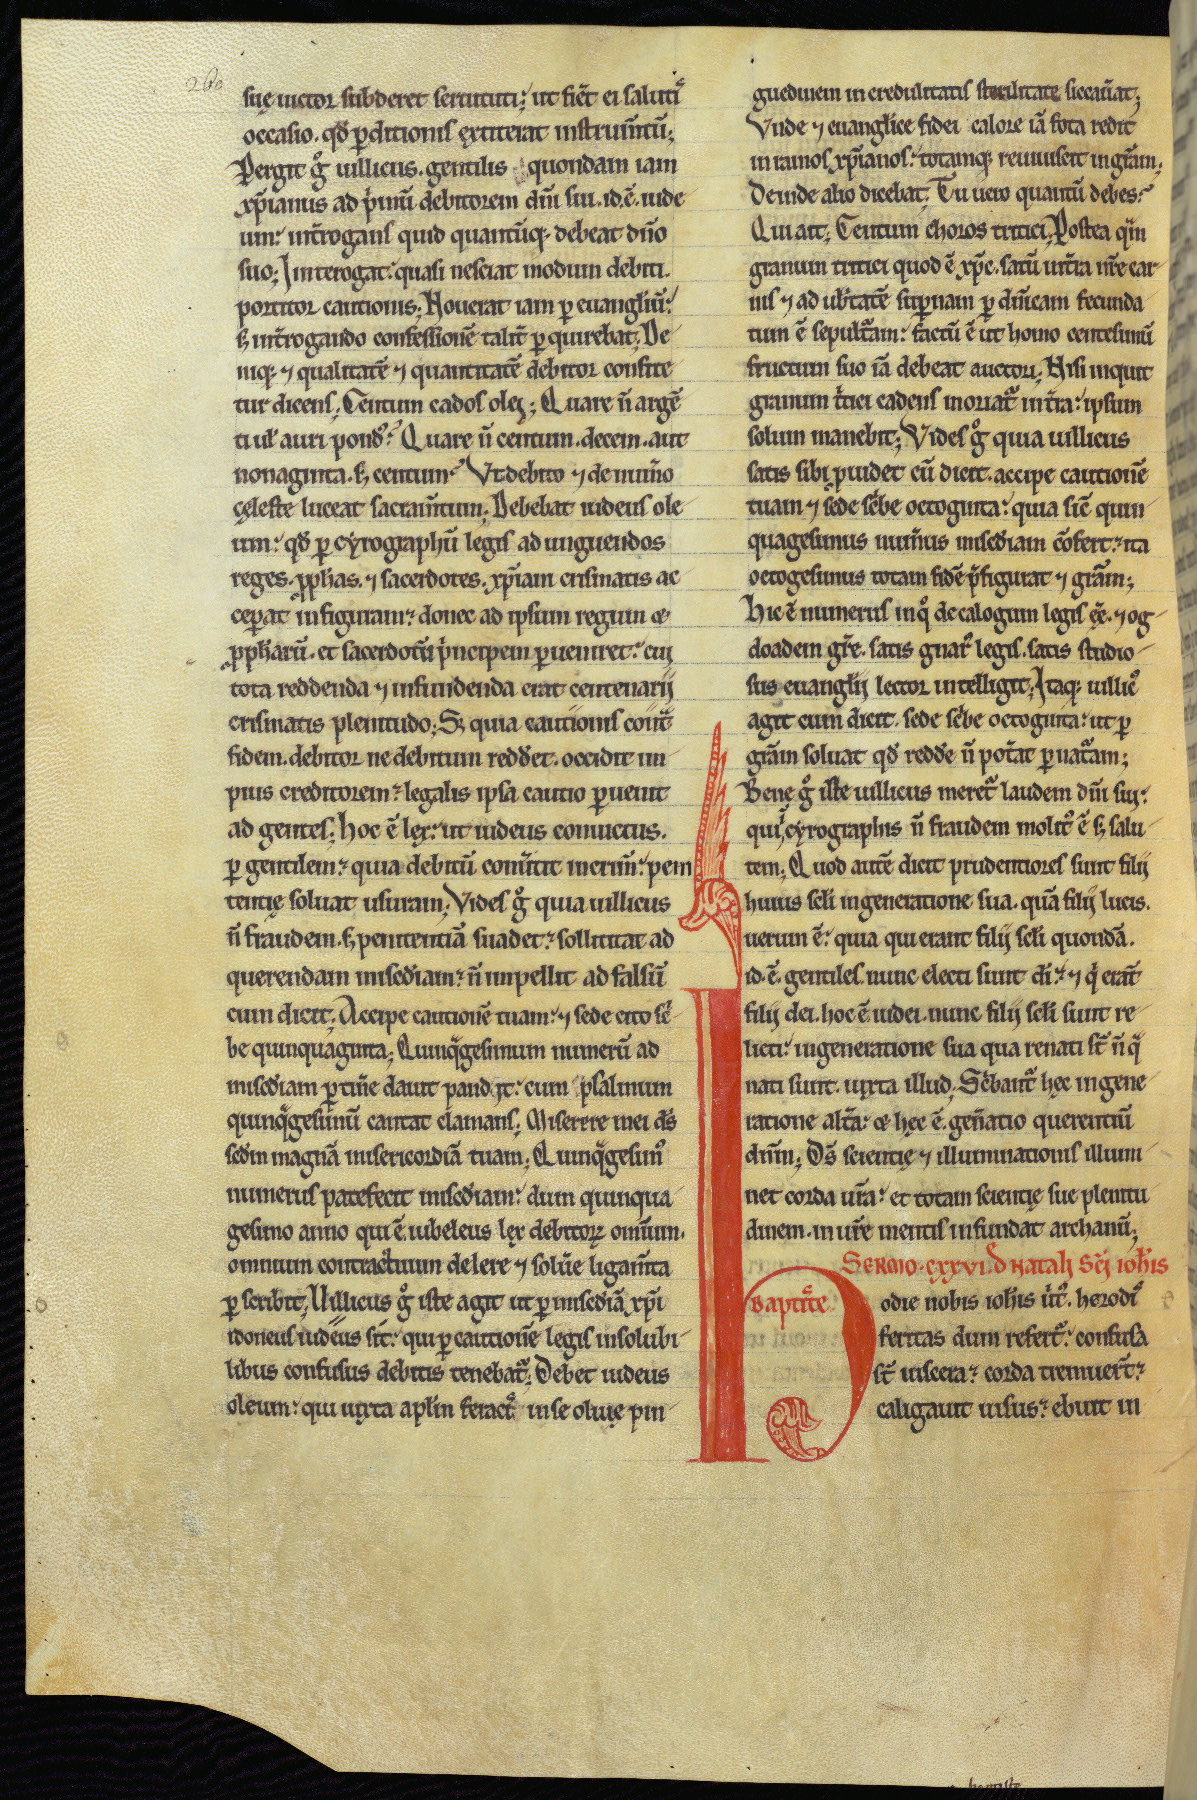 260
suę uictor subderet seruituti; ut fieret ei saluti᷒
occasio. qđ ꝑditionis extiterat instrum̄tū;
Pergit gͦ uillicus. gentilis quondam iam
xp̄ianus ad p̍mū debitorem dn̄i sui. id.ē. iude
um: int̄rogans quid quantūq; debeat dn̄o
suo; Interogat: quasi nesciat modum debiti.
portitor cautionis; Nouerat iam ꝑ euangliū:
s; int̄rogando confessionē talit̄ ꝑquirebat; De
niq; ⁊ qualitatē ⁊ quantitatē debitor confite
tur dicens; Centum cados olei; Quare n̄ argē
ti uł auri pond̄? Quare n̄ centum. decem. aut
nonaginta. s; centum? Vt debito ⁊ de num̄o
cęleste luceat sacram̄tum; Debebat iudeus ole
um: qđ ꝑ cyrographū legis ad unguendos
reges. ꝓphas. ⁊ sacerdotes. xp̄iam crismatis ac
ceꝑat in figuram: donec ad ipsum regum &
ꝓpharū. et sacerdotū p̍ncipem ꝑueniret: cui
tota reddenda ⁊ infundenda erat centenarij
crismatis plenitudo; S; quia cautionis conc̄
fidem. debitor ne debitum redderet. occidit im
pius creditorem: legalis ipsa cautio ꝑuenit
ad gentes; hoc ē lex: ut iudeus conuictus.
ꝑ gentilem: quia debitū conu̍tit in crim̄: peni
tentię soluat usuram; Vides gͦ quia uillicus
n̄ fraudem. s; penitentiā suadet: sollicitat ad
querendam mis̄c̄diam: n̄ impellit ad falsū
cum dicit; Accipe cautionē tuam: ⁊ sede cito sc̍
be quinquaginta; Quinq̄gesimum numerū ad
mis̄c̄diam ꝑtin̄e dauit pandit: cum psalmum
quinq̄gesimū cantat clamans; Miserere mei ds̄
sedm magnā misericordiā tuam; Quinq̄gesim᷒
numerus patefecit mis̄c̄diam: dum quinqua
gesimo anno qui ē iubeleus lex debitorꝝ omnium.
omnium contractuum delere ⁊ solu̍e ligam̄ta
ꝑscribit; Uillicus gͦ iste agit ut ꝑ mis̄c̄diā xp̄i
idoneus iudeus sit: qui ꝑ cautionē legis insolubi
libus confusus debitis tenebat᷑; Debet iudeus
oleum: qui iuxta aplm̄ fractꝰ in se oliuę pin
guedinem incredulitatis sterilitate siccau̍at;
Vnde ⁊ euangl̄ice fidei calore iā fota redit
in ramos xp̄ianos: totamq; reuiuiscit in gr̄am;
Deinde alio dicebat; Tu uero quantū debes?
Qui ait; Centum choros tritici; Postea q̄m
granum tritici quod ē xp̄c. satū int̄ra nr̄e car
nis ⁊ ad ub̍tatē suꝑnam ꝑ dn̄icam fecunda
tium ē sepult᷑am: factū ē ut homo centesimū
fructum suo iā debeat auctori; Nisi inquit
granum t̍tici cadens moriat᷑ in t̍ra: ipsum
solum manebit; Vides gͦ quia uillicus
satis sibi ꝓuidet cū dicit. accipe cautionē
tuam ⁊ sede sc̍be octoginta: quia sic̄ quin
quagesimus num̍us mis̄c̄diam cōfert: ita
octogesimus totam fidē p̄figurat ⁊ gr̄am;
Hic ē numerus in qͦ decalogum legis ēē. ⁊ og
doadem gr̄e. satis gnar᷒ legis. satis studio
sus euanglij lector intelligit; Itaq; uillic᷒
agit cum dicit. sede sc̍be octoginta: ut ꝑ
gr̄am soluat qđ redd̍e n̄ pot̍at ꝑ nat᷑am;
Bene gͦ iste uillicus meret᷑ laudem dn̄i sui:
qui cyrographis n̄ fraudem molit᷒ ē s; salu
tem; Quod autē dicit prudentiores sunt filij
huius sc̄li in generatione sua. quā filij lucis.
uerum ē: quia qui erant filij sc̄li quondā.
id.ē. gentiles. nunc electi sunt d̄i: ⁊ q̍ erāt
filij dei. hoc ē iudei. nunc filij sc̄li sunt re
licti: in generatione sua qua renati st̄ n̄ q̄
nati sunt. iuxta illud. Sc̍bant᷑ hęc in gene
ratione alt̍a: & hęc ē. gen̄atio querentiū
dn̄m; Ds̄ scientię ⁊ illuminationis illumi
net corda ur̄a: et totam scientię sue plenitu
dinem. in ur̄e mentis infundat archanū;
Sermo.cxxvi. d̄ natali Sc̄i ioh̄is
baptist̄e
Hodie nobis ioh̄is ūt᷒. herodi᷒
feritas dum refert᷑: confusa
st̄ uiscera: corda tremuer̄t:
caligauit uisus: ebuit in